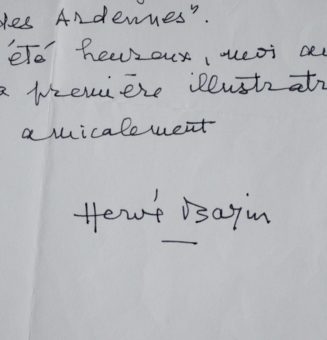 des Ardennes".
été heureux, moi au
première illustratr
amicalement
Hervé Bazin